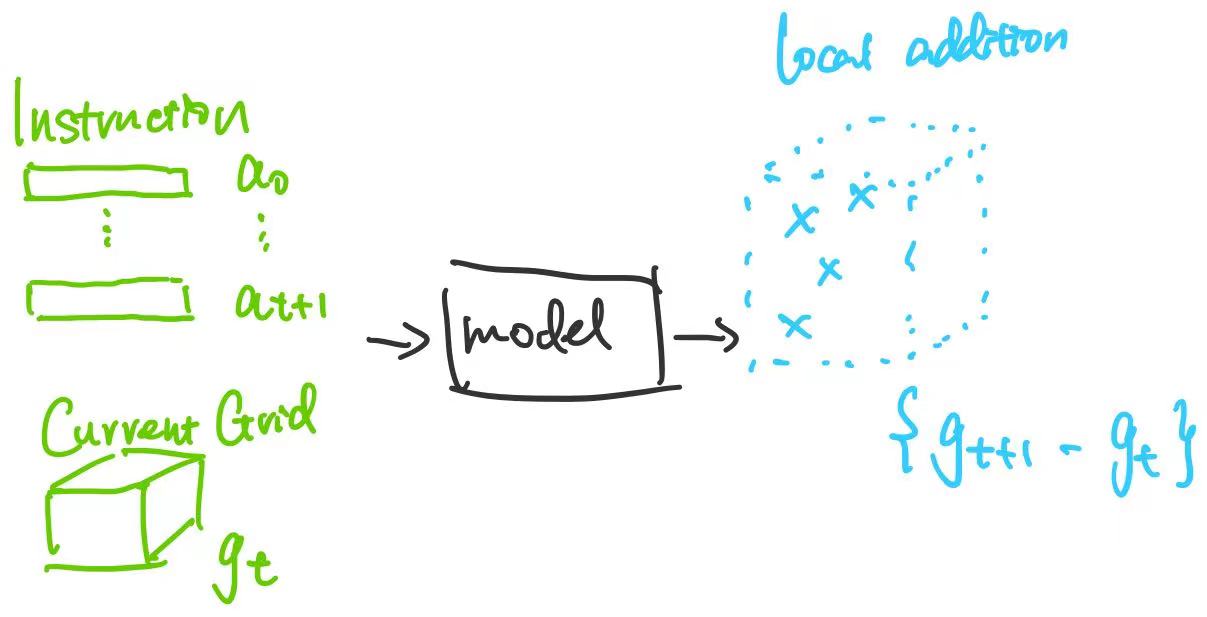 Instruction
a₀
⋮ ⋮
aₜ₊₁
Current Grid
gₜ
→ model →
local addition
x x
x
x
{gₜ₊₁ - gₜ}